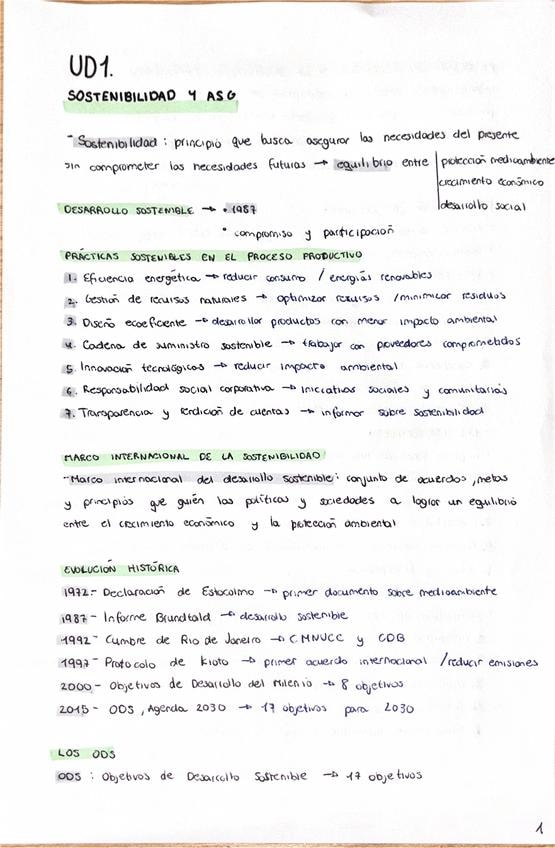 UD1.
SOSTENIBILIDAD Y ASG
- Sostenibilidad : principio que busca asegurar las necesidades del presente
sin comprometer las necesidades futuras → equilibrio entre | protección medioambiente
crecimiento económico
desarrollo social
DESARROLLO SOSTENIBLE → • 1987
• compromiso y participación
PRÁCTICAS SOSTENIBLES EN EL PROCESO PRODUCTIVO
1. Eficiencia energética → reducir consumo / energías renovables
2. Gestión de recursos naturales → optimizar recursos / minimizar residuos
3. Diseño ecoeficiente → desarrollar productos con menor impacto ambiental
4. Cadena de suministro sostenible → trabajar con proveedores comprometidos
5. Innovación tecnológicas → reducir impacto ambiental
6. Responsabilidad social corporativa → iniciativas sociales y comunitarias
7. Transparencia y rendición de cuentas → informar sobre sostenibilidad
MARCO INTERNACIONAL DE LA SOSTENIBILIDAD
- Marco internacional del desarrollo sostenible : conjunto de acuerdos, metas
y principios que guíen las políticas y sociedades a lograr un equilibrio
entre el crecimiento económico y la protección ambiental
EVOLUCIÓN HISTÓRICA
1972 - Declaración de Estocolmo → primer documento sobre medioambiente
1987 - Informe Brundtald → desarrollo sostenible
1992 - Cumbre de Rio de Janeiro → CMNUCC y CDB
1997 - Protocolo de Kioto → primer acuerdo internacional / reducir emisiones
2000 - Objetivos de Desarrollo del Milenio → 8 objetivos
2015 - ODS, Agenda 2030 → 17 objetivos para 2030
LOS ODS
ODS : Objetivos de Desarrollo Sostenible → 17 objetivos
1